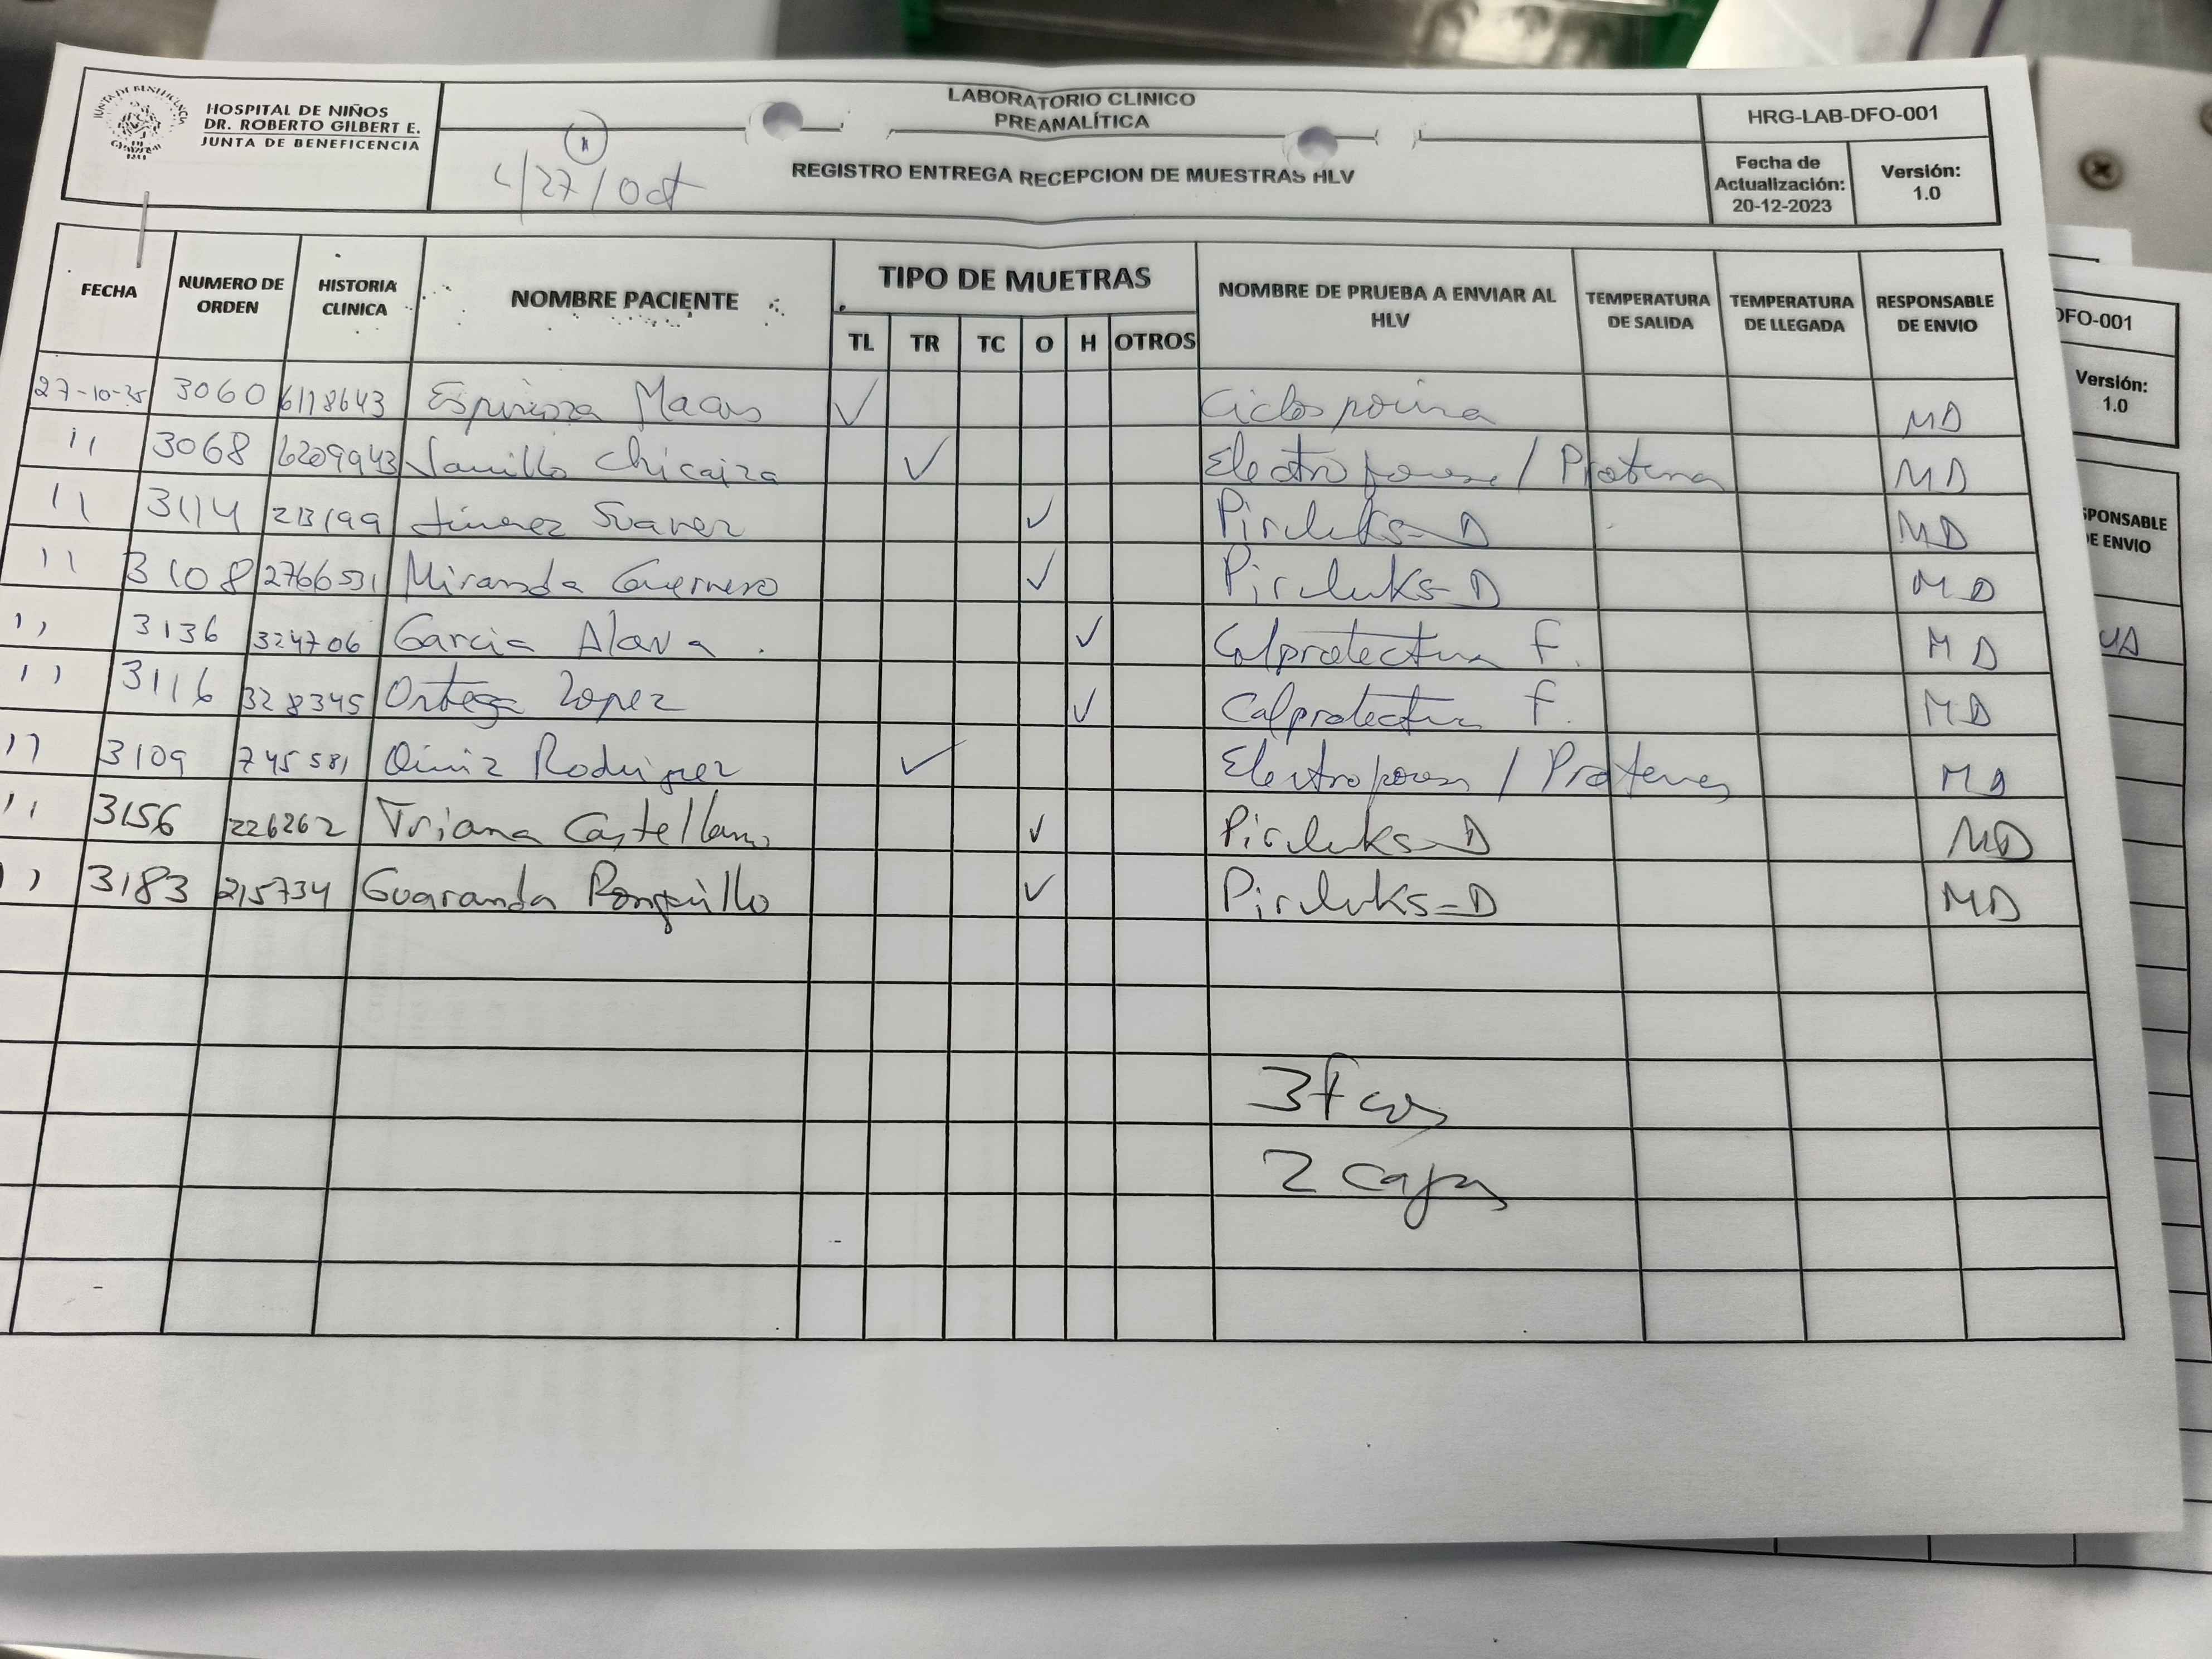 HOSPITAL DE NIÑOS
DR. ROBERTO GILBERT E.
JUNTA DE BENEFICENCIA
LABORATORIO CLINICO
PREANALÍTICA
REGISTRO ENTREGA RECEPCION DE MUESTRAS HLV
L/27/Oct
HRG-LAB-DFO-001
Fecha de Actualización: 20-12-2023
Versión: 1.0
FECHA NUMERO DE ORDEN HISTORIA CLINICA NOMBRE PACIENTE TIPO DE MUETRAS NOMBRE DE PRUEBA A ENVIAR AL HLV TEMPERATURA DE SALIDA TEMPERATURA DE LLEGADA RESPONSABLE DE ENVIO
TL TR TC O H OTROS
27-10-25 3060 6118643 Espinoza Macas ✓ Ciclosporina MD
" 3068 6209943 Chicaiza ✓ / Proteina MD
" 3114 213199 Jimenez Suarez ✓ MD
" 3108 2766531 Miranda Guerrero ✓ MD
" 3136 324706 Garcia Alava. ✓ F. MD
" 3116 328345 Ortega Lopez ✓ F. MD
" 3109 745581 Rodriguez ✓ / MD
" 3156 226262 Triana Castellano ✓ MD
" 3183 215734 Guaranda Ronquillo ✓ MD
2 cajas
DFO-001
Versión:
1.0
SPONSABLE
DE ENVIO